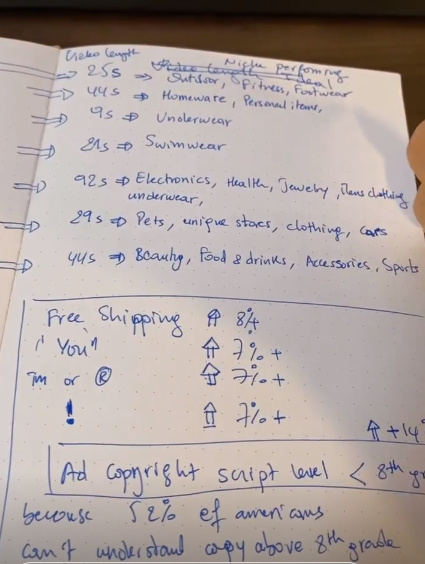 Video length
Niche performing
Video length Ideal
25s ⇒ Outdoor, Fitness, Footwear
44s ⇒ Homeware, Personal items,
9s ⇒ Underwear
21s ⇒ Swimwear
92s ⇒ Electronics, Health, Jewelry, Mens clothing
underwear,
29s ⇒ Pets, unique stores, clothing, cars
44s ⇒ Beauty, Food & drinks, Accessories, Sports
Free Shipping ⇑ 8%
"You" ⇑ 7% +
TM or ® ⇑ 7% +
! ⇑ 7% +
⇑ +14
Ad copyright script level < 8th gr
because 52% of americans
can't understand copy above 8th grade